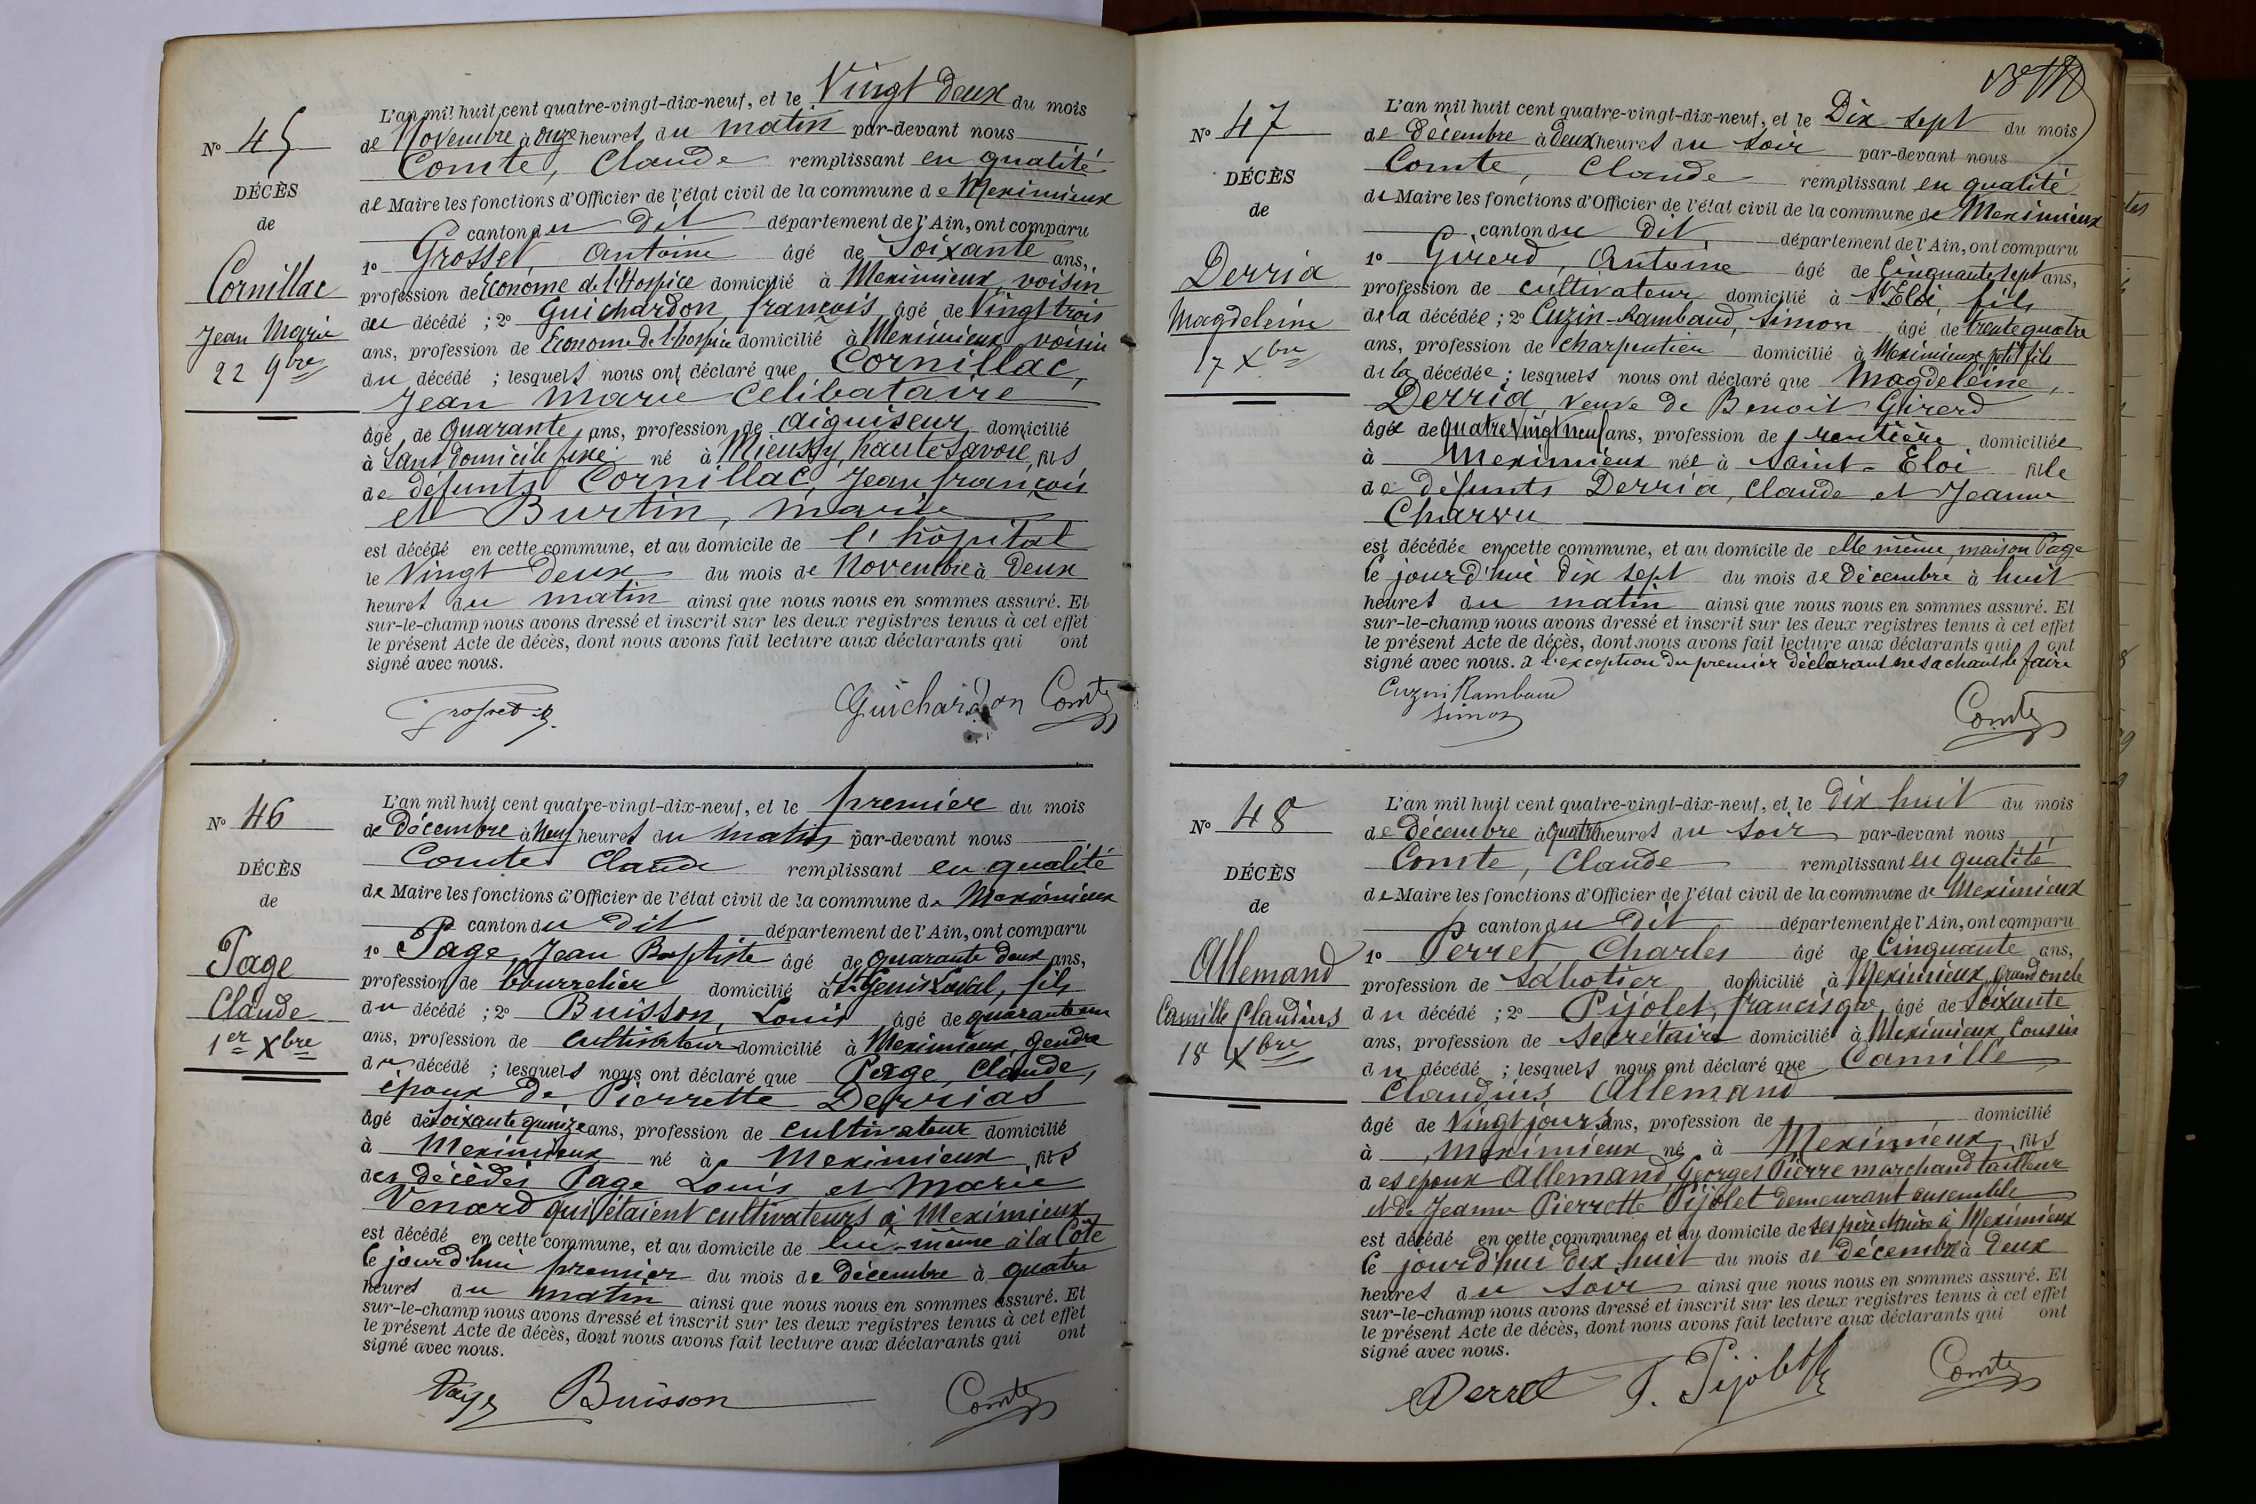 L'an mil huit cent quatre-vingt-dix-neuf, et le Vingt deux du mois
N° 45
de Novembre à onze heures du matin par-devant nous
Comte, Claude remplissant en qualité
DÉCÈS
de Maire les fonctions d'Officier de l'état civil de la commune de Meximieux
de
canton du dit département de l'Ain, ont comparu
1° Grosset Antoine âgé de Soixante ans,
Cornillac
profession de Econome de l'Hospice domicilié à Meximieux, voisin
du décédé ; 2° Guichardon, françois, âgé de Vingt trois
Jean Marie
ans, profession de Econome de l'hospice domicilié à Meximieux voisin
22 9bre
du décédé ; lesquels nous ont déclaré que Cornillac,
Jean Marie Celibataire
âgé de Quarante ans, profession de aiguiseur domicilié
à Sans domicile fixe né à Mieussy, haute Savoie, fils
de défunts Cornillac, Jean françois
et Burtin, Marie
est décédé en cette commune, et au domicile de l'hôpital
le Vingt Deux du mois de Novembre à Deux
heures du matin ainsi que nous nous en sommes assuré. Et
sur-le-champ nous avons dressé et inscrit sur les deux registres tenus à cet effet
le présent Acte de décès, dont nous avons fait lecture aux déclarants qui ont
signé avec nous.
Grosset Guichardon Comte
L'an mil huit cent quatre-vingt-dix-neuf, et le premier du mois
N° 46
de Décembre à Neuf heures du matin par-devant nous
Comte Claude remplissant en qualité
DÉCÈS
de Maire les fonctions d'Officier de l'état civil de la commune de Meximieux
de
canton du dit département de l'Ain, ont comparu
Page
1° Page, Jean Baptiste âgé de quarante deux ans,
profession de bourrelier domicilié à St Genis Laval, fils
Claude
du décédé ; 2° Buisson, Louis âgé de quarante un
1er Xbre
ans, profession de Cultivateur domicilié à Meximieux, gendre
du décédé ; lesquels nous ont déclaré que Page, Claude,
époux de Pierrette Derrias
âgé de Soixante quinze ans, profession de cultivateur domicilié
à Meximieux né à Meximieux, fils
des décédés Page Louis et Marie
Venard qui étaient cultivateurs à Meximieux
est décédé en cette commune, et au domicile de lui-même à la Côte
le jourd'hui premier du mois de Décembre à quatre
heures du matin ainsi que nous nous en sommes assuré. Et
sur-le-champ nous avons dressé et inscrit sur les deux registres tenus à cet effet
le présent Acte de décès, dont nous avons fait lecture aux déclarants qui ont
signé avec nous.
Page Buisson Comte
L'an mil huit cent quatre-vingt-dix-neuf, et le Dix sept du mois
N° 47
de Décembre à deux heures du soir par-devant nous
Comte, Claude remplissant en qualité
DÉCÈS
de Maire les fonctions d'Officier de l'état civil de la commune de Meximieux
de
canton du dit département de l'Ain, ont comparu
Derria
1° Girerd, Antoine âgé de Cinquante sept ans,
profession de cultivateur domicilié à St Eloi, fils
Magdeleine
de la décédée ; 2° Cuzin-Rambaud, Simon âgé de trente quatre
17 Xbre
ans, profession de charpentier domicilié à Meximieux, petit fils
de la décédée ; lesquels nous ont déclaré que Magdeleine,
Derria, veuve de Benoit Girerd
âgée de quatre Vingt neuf ans, profession de rentière domiciliée
à Meximieux née à Saint-Eloi fille
de défunts Derria, Claude et Jeanne
Charvu
est décédée en cette commune, et au domicile de elle même, maison Page
le jourd'hui dix sept du mois de Décembre à huit
heures du matin ainsi que nous nous en sommes assuré. Et
sur-le-champ nous avons dressé et inscrit sur les deux registres tenus à cet effet
le présent Acte de décès, dont nous avons fait lecture aux déclarants qui ont
signé avec nous. à l'exception du premier déclarant ne sachant le faire
Cuzin Rambaud
Simon Comte
L'an mil huit cent quatre-vingt-dix-neuf, et le dix huit du mois
N° 48
de Décembre à quatre heures du soir par-devant nous
Comte, Claude remplissant en qualité
DÉCÈS
de Maire les fonctions d'Officier de l'état civil de la commune de Meximieux
de
canton du dit département de l'Ain, ont comparu
Allemand
1° Perret, Charles âgé de Cinquante ans,
profession de Sabotier domicilié à Meximieux, Grand oncle
Camille Claudius
du décédé ; 2° Pijolet, francisque, âgé de Soixante
18 Xbre
ans, profession de Secrétaire domicilié à Meximieux, Cousin
du décédé ; lesquels nous ont déclaré que Camille
Claudius Allemand
âgé de Vingt jours ans, profession de domicilié
à Meximieux né à Meximieux, fils
des époux Allemand, Georges Pierre marchand tailleur
et de Jeanne Pierrette Pijolet demeurant ensemble
est décédé en cette commune, et au domicile de ses père et mère à Meximieux
le jourd'hui dix huit du mois de décembre à Deux
heures du soir ainsi que nous nous en sommes assuré. Et
sur-le-champ nous avons dressé et inscrit sur les deux registres tenus à cet effet
le présent Acte de décès, dont nous avons fait lecture aux déclarants qui ont
signé avec nous.
Perret F. Pijolet Comte